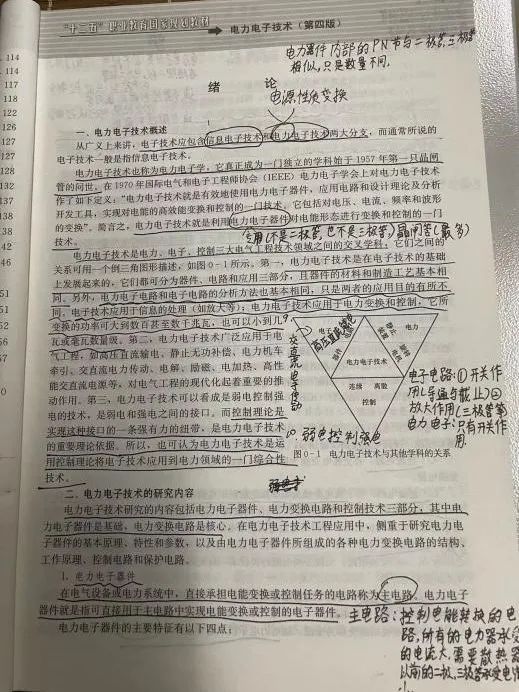 "十二五"职业教育国家规划教材
电力电子技术（第四版）
电力器件内部的PN节与二极管、三极管
相似，只是数量不同.
绪 论
电源性质变换
114
114
117
118
122
126
126
128
131
132
135
138
42
46
51
一、电力电子技术概述
从广义上来讲，电子技术应包含信息电子技术和电力电子技术两大分支，而通常所说的
电子技术一般是指信息电子技术。
电力电子技术也称为电力电子学，它真正成为一门独立的学科始于1957年第一只晶闸
管的问世。在1970年国际电气和电子工程师协会（IEEE）电力电子学会上对电力电子技术
作了如下定义："电力电子技术就是有效地使用电力电子器件，应用电路和设计理论及分析
开发工具，实现对电能的高效能变换和控制的一门技术，它包括对电压、电流、频率和波形
的变换"。简言之，电力电子技术就是利用电力电子器件对电能形态进行变换和控制的一门
技术。
专用(不是二极管也不是三极管)晶闸管(最多)
电力电子技术是电力、电子、控制三大电气工程技术领域之间的交叉学科，它们之间的
关系可用一个倒三角图形描述，如图0-1所示。第一，电力电子技术是在电子技术的基础
上发展起来的，它们都可分为器件、电路和应用三部分，且器件的材料和制造工艺基本相
同。另外，电力电子电路和电子电路的分析方法也基本相同，只是两者的应用目的有所不
同，电子技术应用于信息的处理（如放大等），电力电子技术应用于电力变换和控制，它所
变换的功率可大到数百甚至数千兆瓦，也可以小到几
瓦或毫瓦数量级。第二，电力电子技术广泛应用于电
气工程，如高压直流输电、静止无功补偿、电力机车
牵引、交直流电力传动、电解、励磁、电加热、高性
能交直流电源等，对电气工程的现代化起着重要的推
动作用。第三，电力电子技术可以看成是弱电控制强
电的技术，是弱电和强电之间的接口。而控制理论是
实现这种接口的一条强有力的纽带，是电力电子技术
的重要理论依据。所以，也可认为电力电子技术是运
用控制理论将电子技术应用到电力领域的一门综合性
技术。
高压直流输电
电子
电力
静止
电力电子技术
连续 离散
控制
弱电控制强电
图0-1 电力电子技术与其他学科的关系
电子电路:①开关作
用(导通与截止)②
放大作用(三极管等)
电力电子:只有开关作
用.
二、电力电子技术的研究内容
电力电子技术研究的内容包括电力电子器件、电力变换电路和控制技术三部分，其中电
力电子器件是基础，电力变换电路是核心。在电力电子技术工程应用中，侧重于研究电力电
子器件的基本原理、特性和参数，以及由电力电子器件所组成的各种电力变换电路的结构、
工作原理、控制电路和保护电路。
1. 电力电子器件
在电气设备或电力系统中，直接承担电能变换或控制任务的电路称为主电路。电力电子
器件就是指可直接用于主电路中实现电能变换或控制的电子器件。
电力电子器件的主要特征有以下四点：
主电路:控制电能转换的电
路,所有的电力器承受
的电流大,需要散热器
以前的二极,三极管承受电